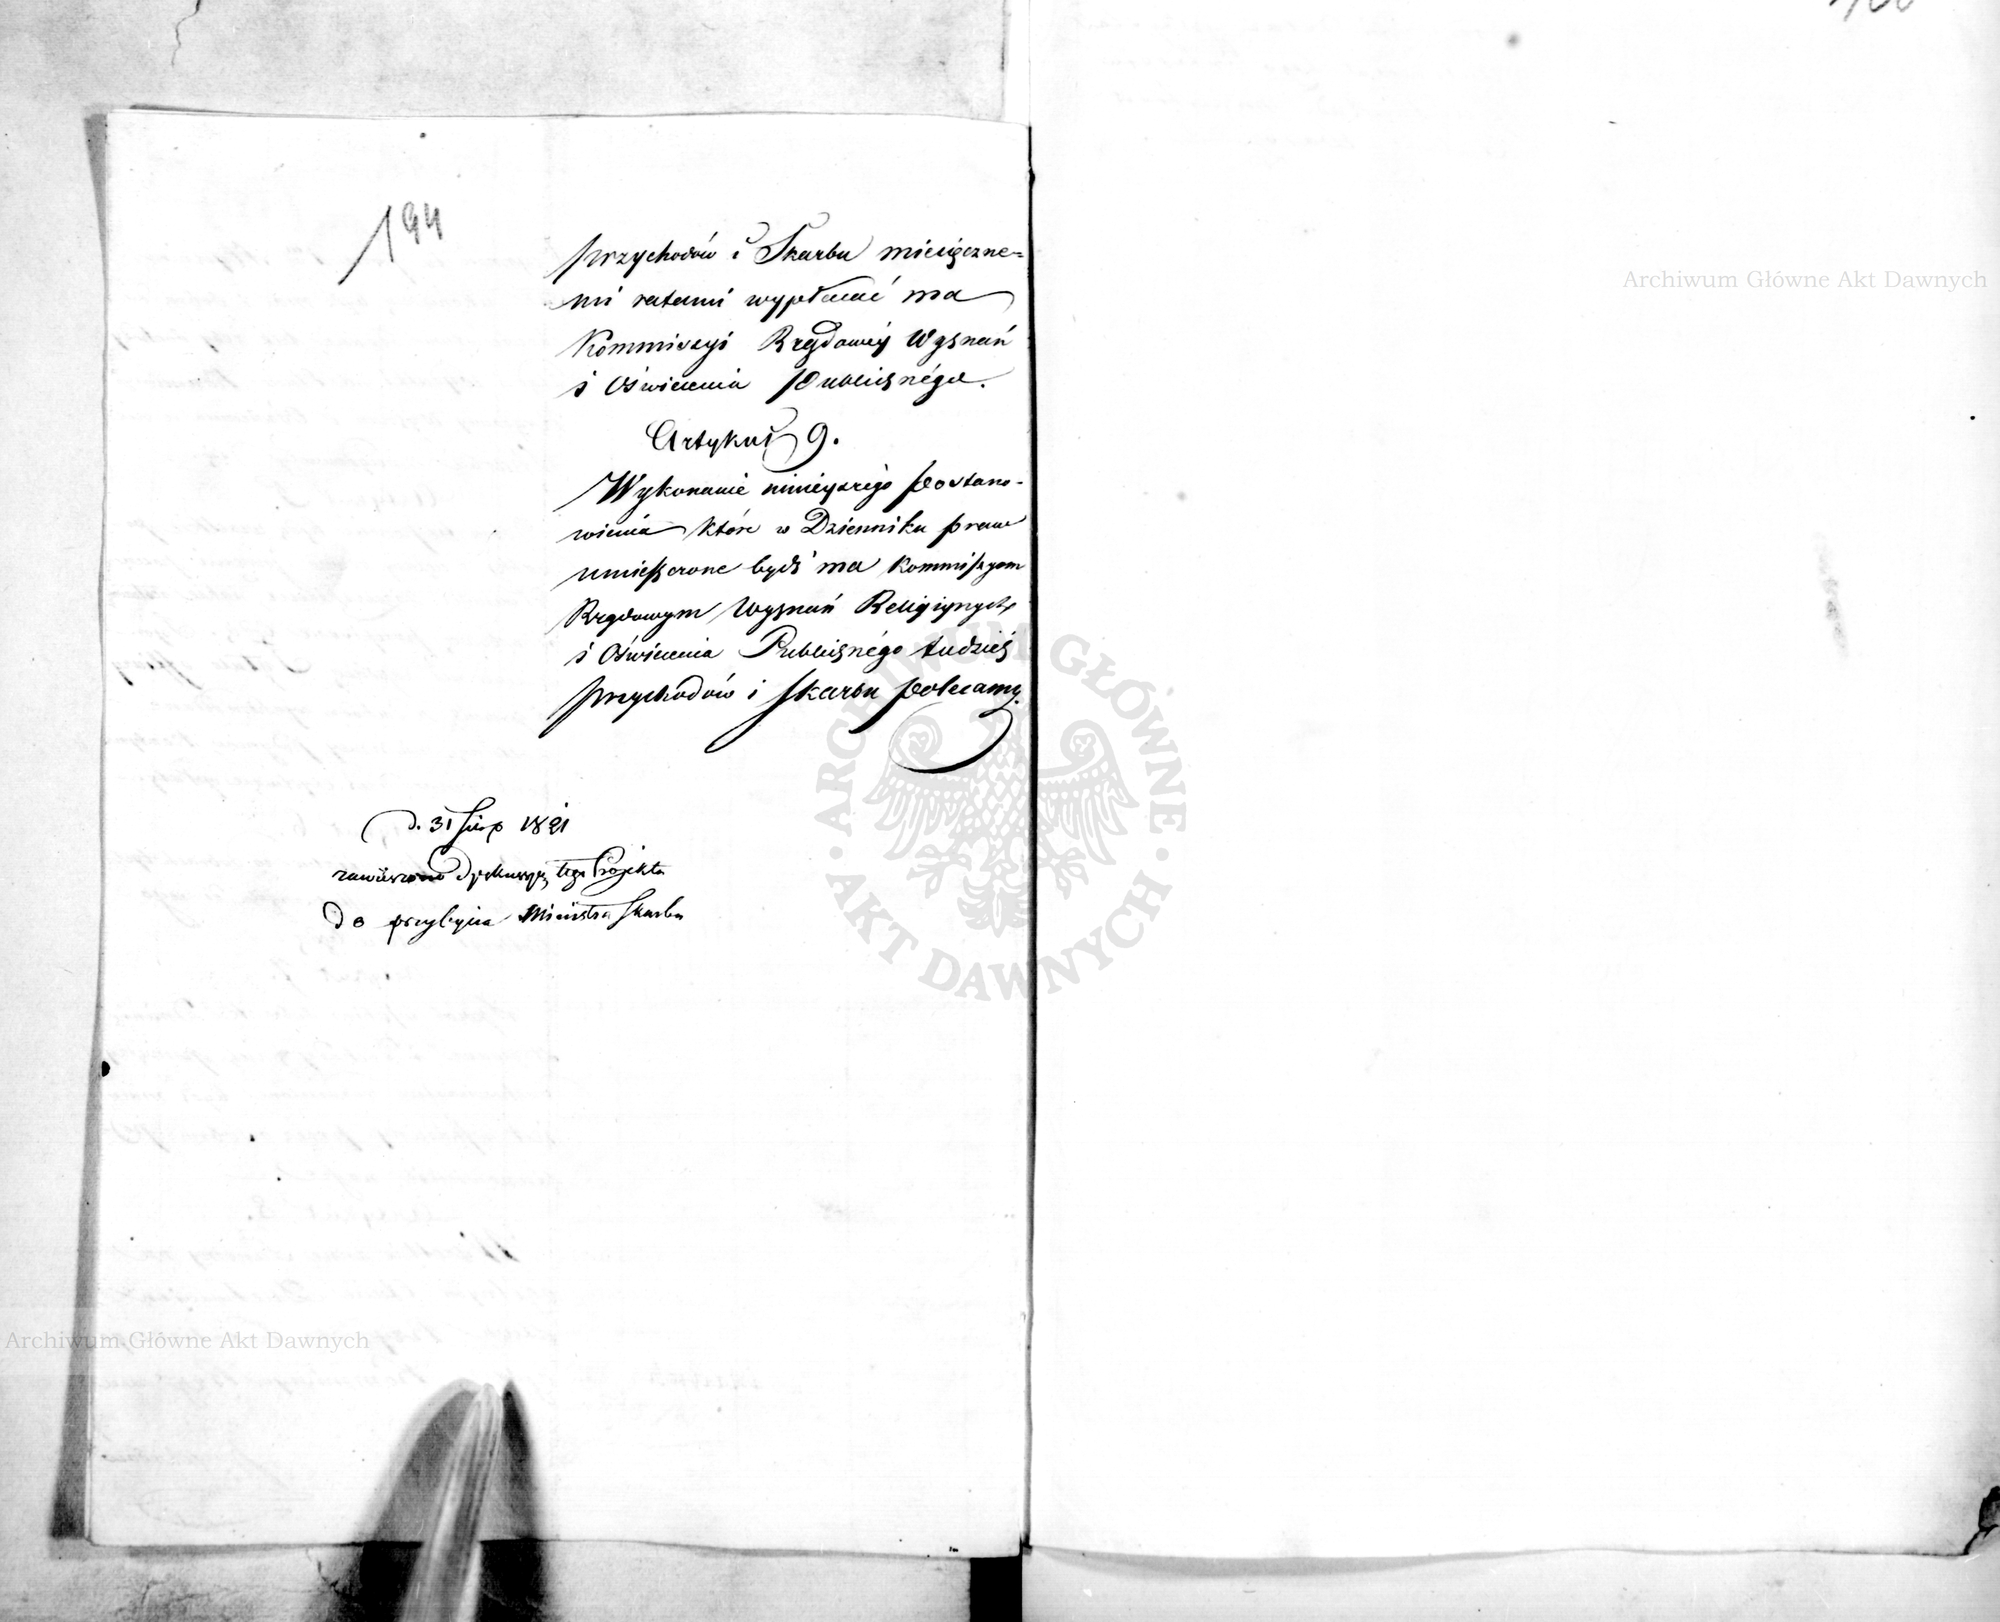 194
przychodów i Skarbu miesięczne=
mi ratami wypłacać ma
Kommissyi Rządowéy Wyznań
i Oświecenia Publicznégo.
Artykuł 9.
Wykonanie ninieyszégo postano-
wienia które w Dzienniku praw
umieszczone bydź ma Kommissyom
Rządowym Wyznań Religiynych
i Oświecenia Publicznégo tudzież
przychodów i Skarbu polecamy.
d. 31 Sierp 1821
zawieszono dyskussyą tego Projektu
do przybycia Ministra Skarbu
Archiwum Główne Akt Dawnych
Archiwum Główne Akt Dawnych
· ARCHIWUM GŁÓWNE · AKT DAWNYCH